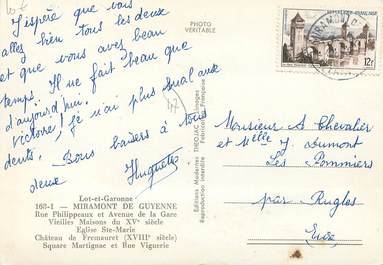 J'espère que vous
allez bien tous les deux
et que vous avez beau
temps. Il ne fait beau que
d'aujourd'hui.
Victoire! je n'ai plus mal aux
dents. Bons baisers à tous
deux
Huguette
Lot-et-Garonne
168-1 — MIRAMONT DE GUYENNE
Rue Philippeaux et Avenue de la Gare
Vieilles Maisons du XVe siècle
Eglise Ste-Marie
Château de Fremauret (XVIIIe siècle)
Square Martignac et Rue Viguerie
PHOTO
VERITABLE
Editions Modernes THEOJAC
Reproduction interdite
Fabrication Française
47
RÉPUBLIQUE FRANÇAISE
12f
MIRAMONT
Monsieur A Chevalier
et Melle J Dumont
Les Pommiers
par Rugles
Eure